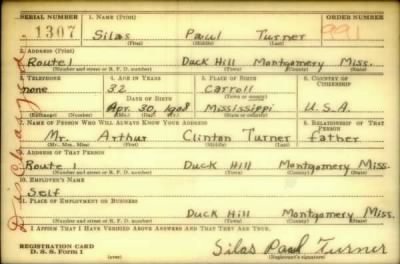 SERIAL NUMBER 1. NAME (Print) ORDER NUMBER
1307 Silas Paul Turner 991
(First) (Middle) (Last)
2. ADDRESS (Print)
Route 1 Duck Hill Montgomery Miss.
(Number and street or R. F. D. number) (Town) (County) (State)
3. TELEPHONE 4. AGE IN YEARS 5. PLACE OF BIRTH 6. COUNTRY OF CITIZENSHIP
none 32 Carroll
DATE OF BIRTH
Apr. 30, 1908 Mississippi U.S.A.
(Exchange) (Number) (Mo.) (Day) (Yr.) (State or country)
7. NAME OF PERSON WHO WILL ALWAYS KNOW YOUR ADDRESS 8. RELATIONSHIP OF THAT PERSON
Mr. Arthur Clinton Turner father
(Mr., Mrs., Miss) (First) (Middle) (Last)
9. ADDRESS OF THAT PERSON
Route 1 Duck Hill Montgomery Miss.
(Number and street or R. F. D. number) (Town) (County) (State)
10. EMPLOYER'S NAME
Self
11. PLACE OF EMPLOYMENT OR BUSINESS
Duck Hill Montgomery Miss.
(Number and street or R. F. D. number) (Town) (County) (State)
I AFFIRM THAT I HAVE VERIFIED ABOVE ANSWERS AND THAT THEY ARE TRUE.
REGISTRATION CARD
D. S. S. Form 1 Silas Paul Turner
(over) (Registrant's signature)